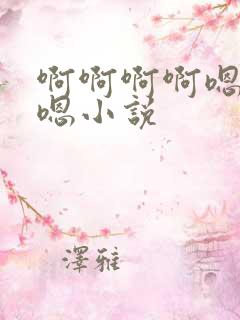 啊啊啊啊嗯
嗯小説
澤雅